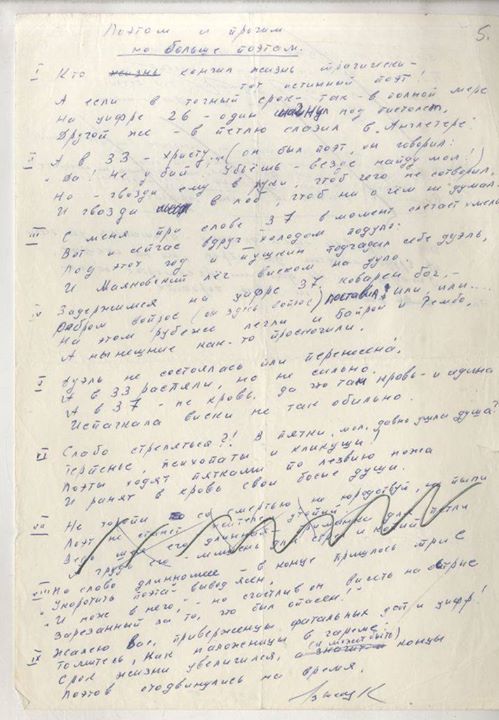 5.
Поэтам и прочим
но больше поэтам.
I Кто жизнь кончил жизнь трагически —
тот истинный поэт!
А если в точный срок — так — в полной мере
На цифре 26 — один шагнул под пистолет,
Другой же — в петлю слазил в „Англетере."
II А в 33 — Христу... (он был поэт, он говорил:
"Да! Не убий! Убьёшь — везде найду мол!)
Но — гвозди ему в руки, чтоб чего не сотворил,
И гвозди в лоб, чтоб ни о чём не думал
III С меня при слове 37 в момент слетает хмель
Вот и сейчас вдруг холодом подуло:
Под этот год и Пушкин подгадал себе дуэль,
И Маяковский лёг виском на дуло.
IV Задержимся на цифре 37, коварен бог, —
Ребром вопрос (он здесь вопрос) поставил: или, или...
На этом рубеже легли и Байрон и Рембо,
А нынешние как-то проскочили.
V Дуэль не состоялась или перенесена,
А в 33 распяли, но не сильно.
А в 37 — не кровь, да что там кровь — и седина
Испачкала виски не так обильно.
VI Слабо стреляться?! В пятки, мол, давно ушла душа?
Терпенье, психопаты и кликуши!
Поэты ходят пятками по лезвию ножа
И ранят в кровь свои босые души.
VII Не торопи со смертью, не юродствуй,
Поэт не
его длинной
А грудь его — мишень для стрел
VIII На слово длинношее — в конце пришлось три Е
"Укоротить поэта!" — вывод ясен,
"И нож в него," — но счастлив он висеть на острие
Зарезанный за то, что был опасен!
IX Жалею вас, приверженцы фатальных дат и цифр!
Томитесь, как наложницы в гареме:
Срок жизни увеличился, а значит (и может быть) концы
Поэтов отодвинулись на время.
Высоцк